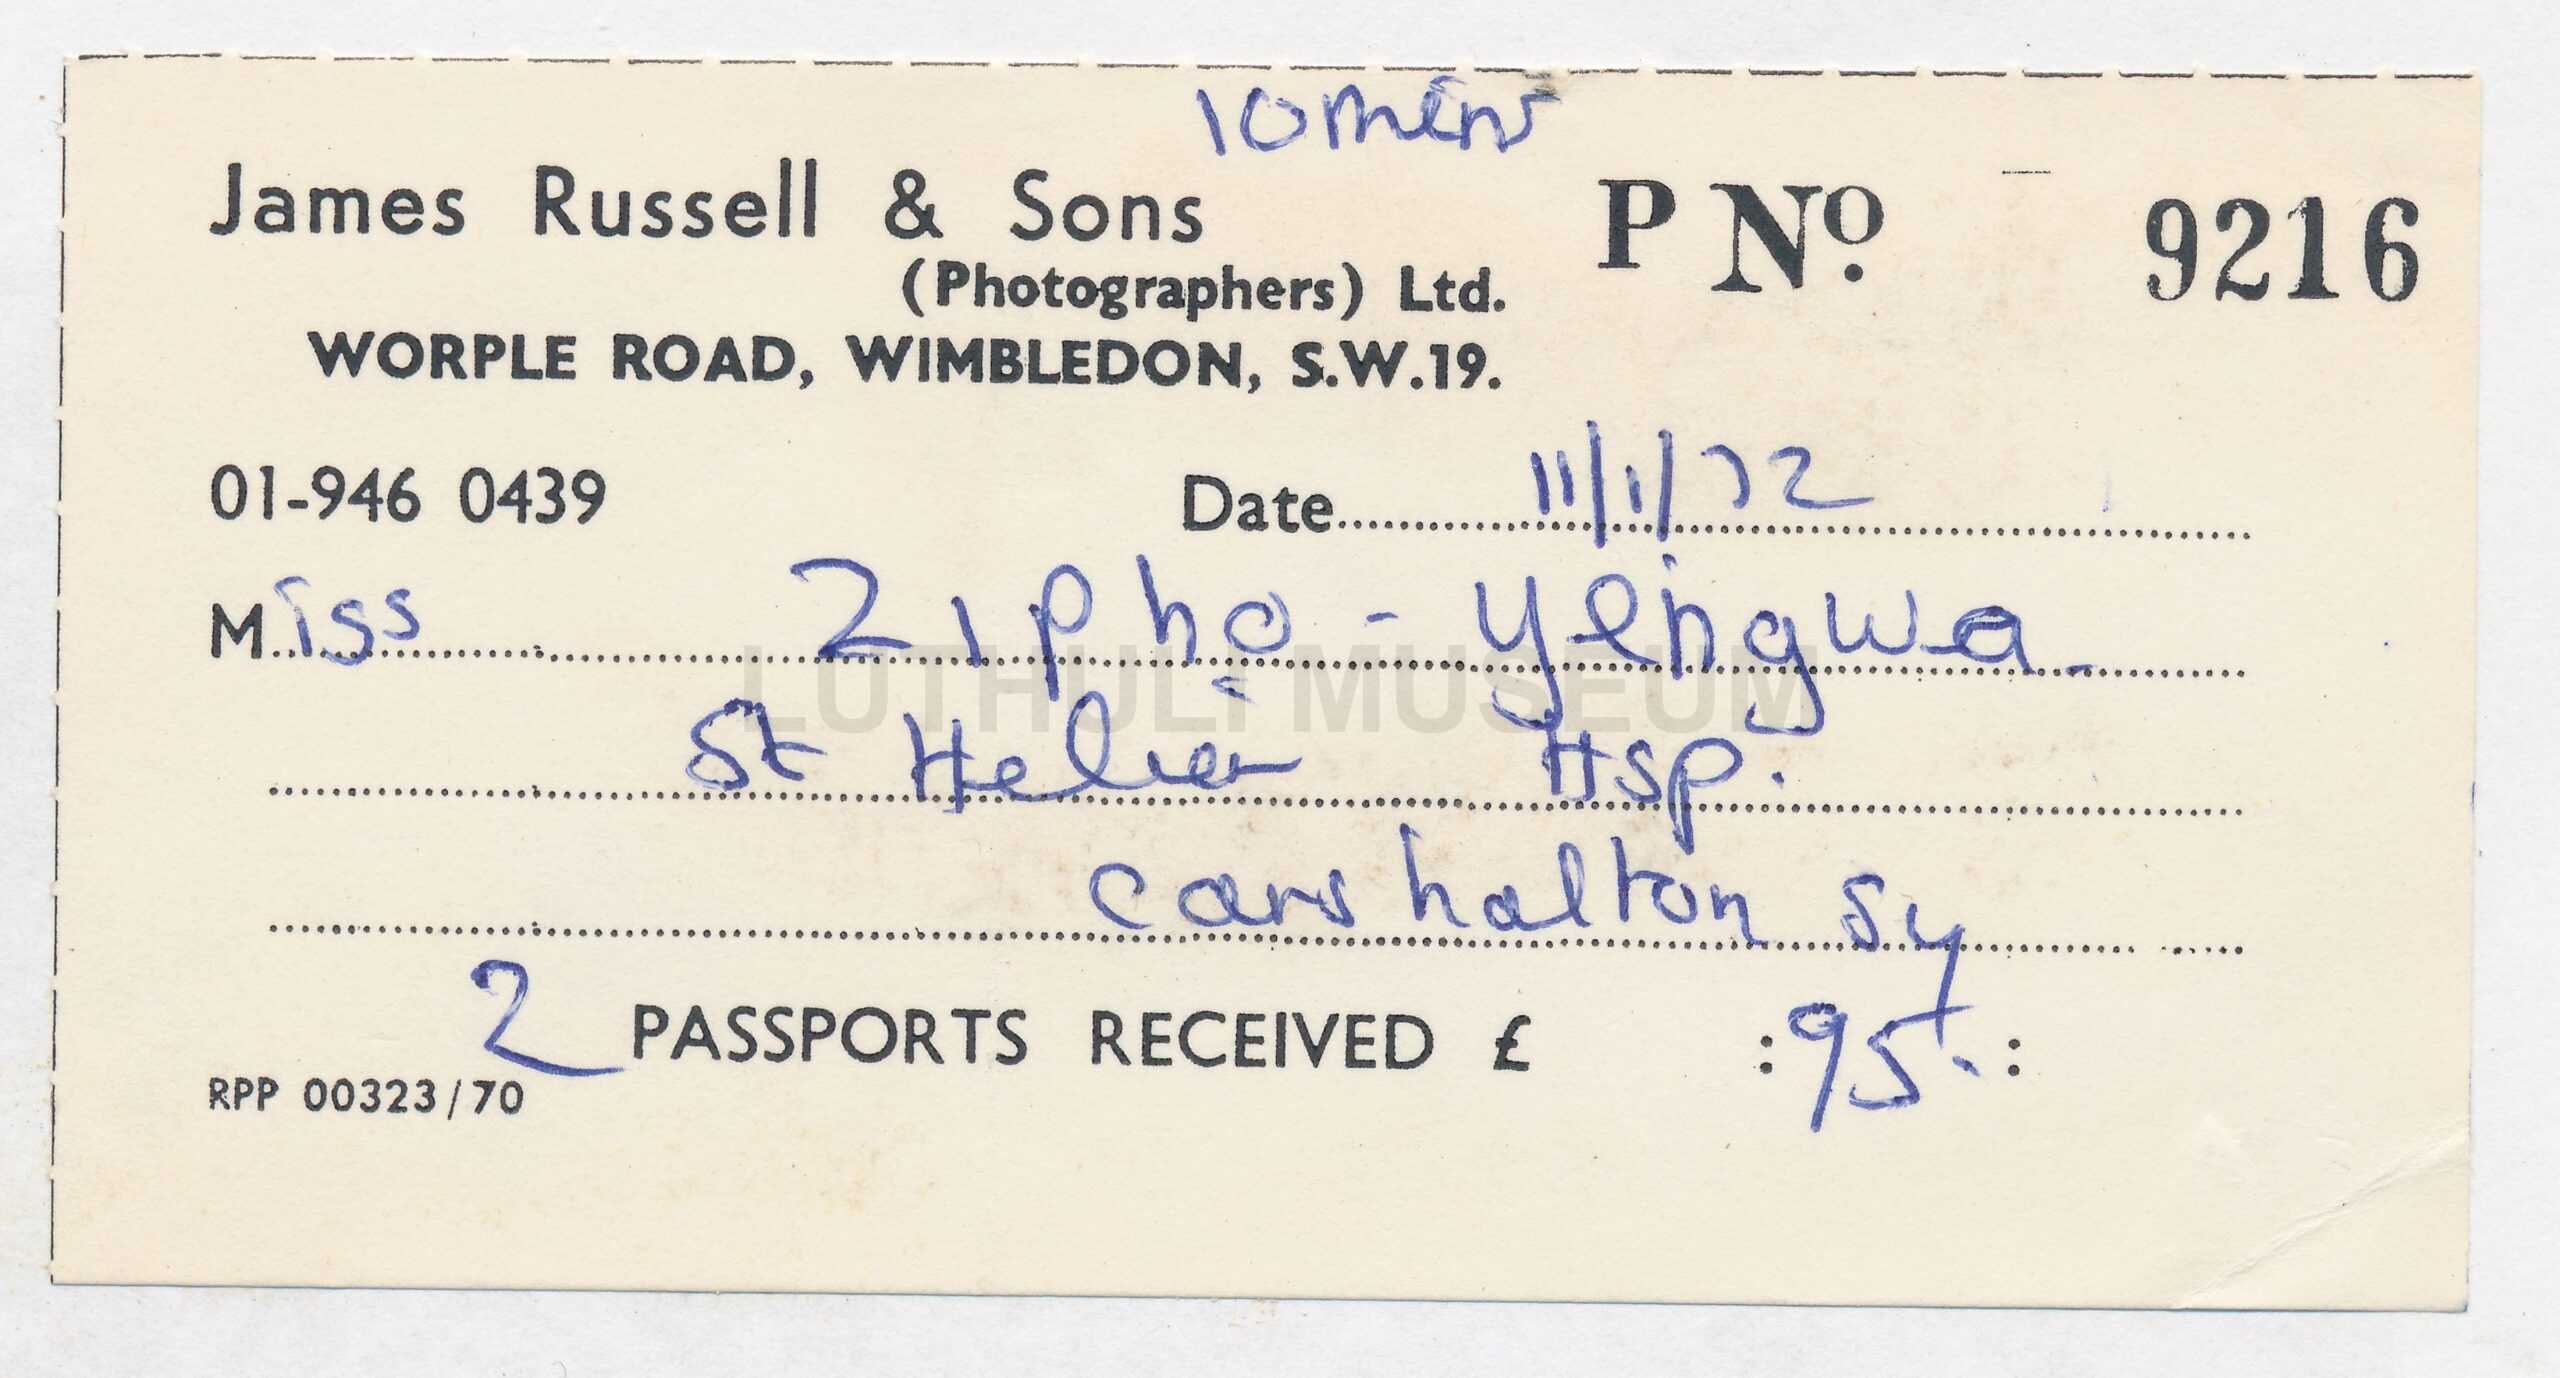 10 mins
James Russell & Sons P Nº. 9216
(Photographers) Ltd.
WORPLE ROAD, WIMBLEDON, S.W.19.
01-946 0439 Date 11/1/72
Miss Zipho - Yengwa
LUTHULI MUSEUM
St Helier Hsp.
Carshalton Sy
2 PASSPORTS RECEIVED £ : 95. :
RPP 00323/70